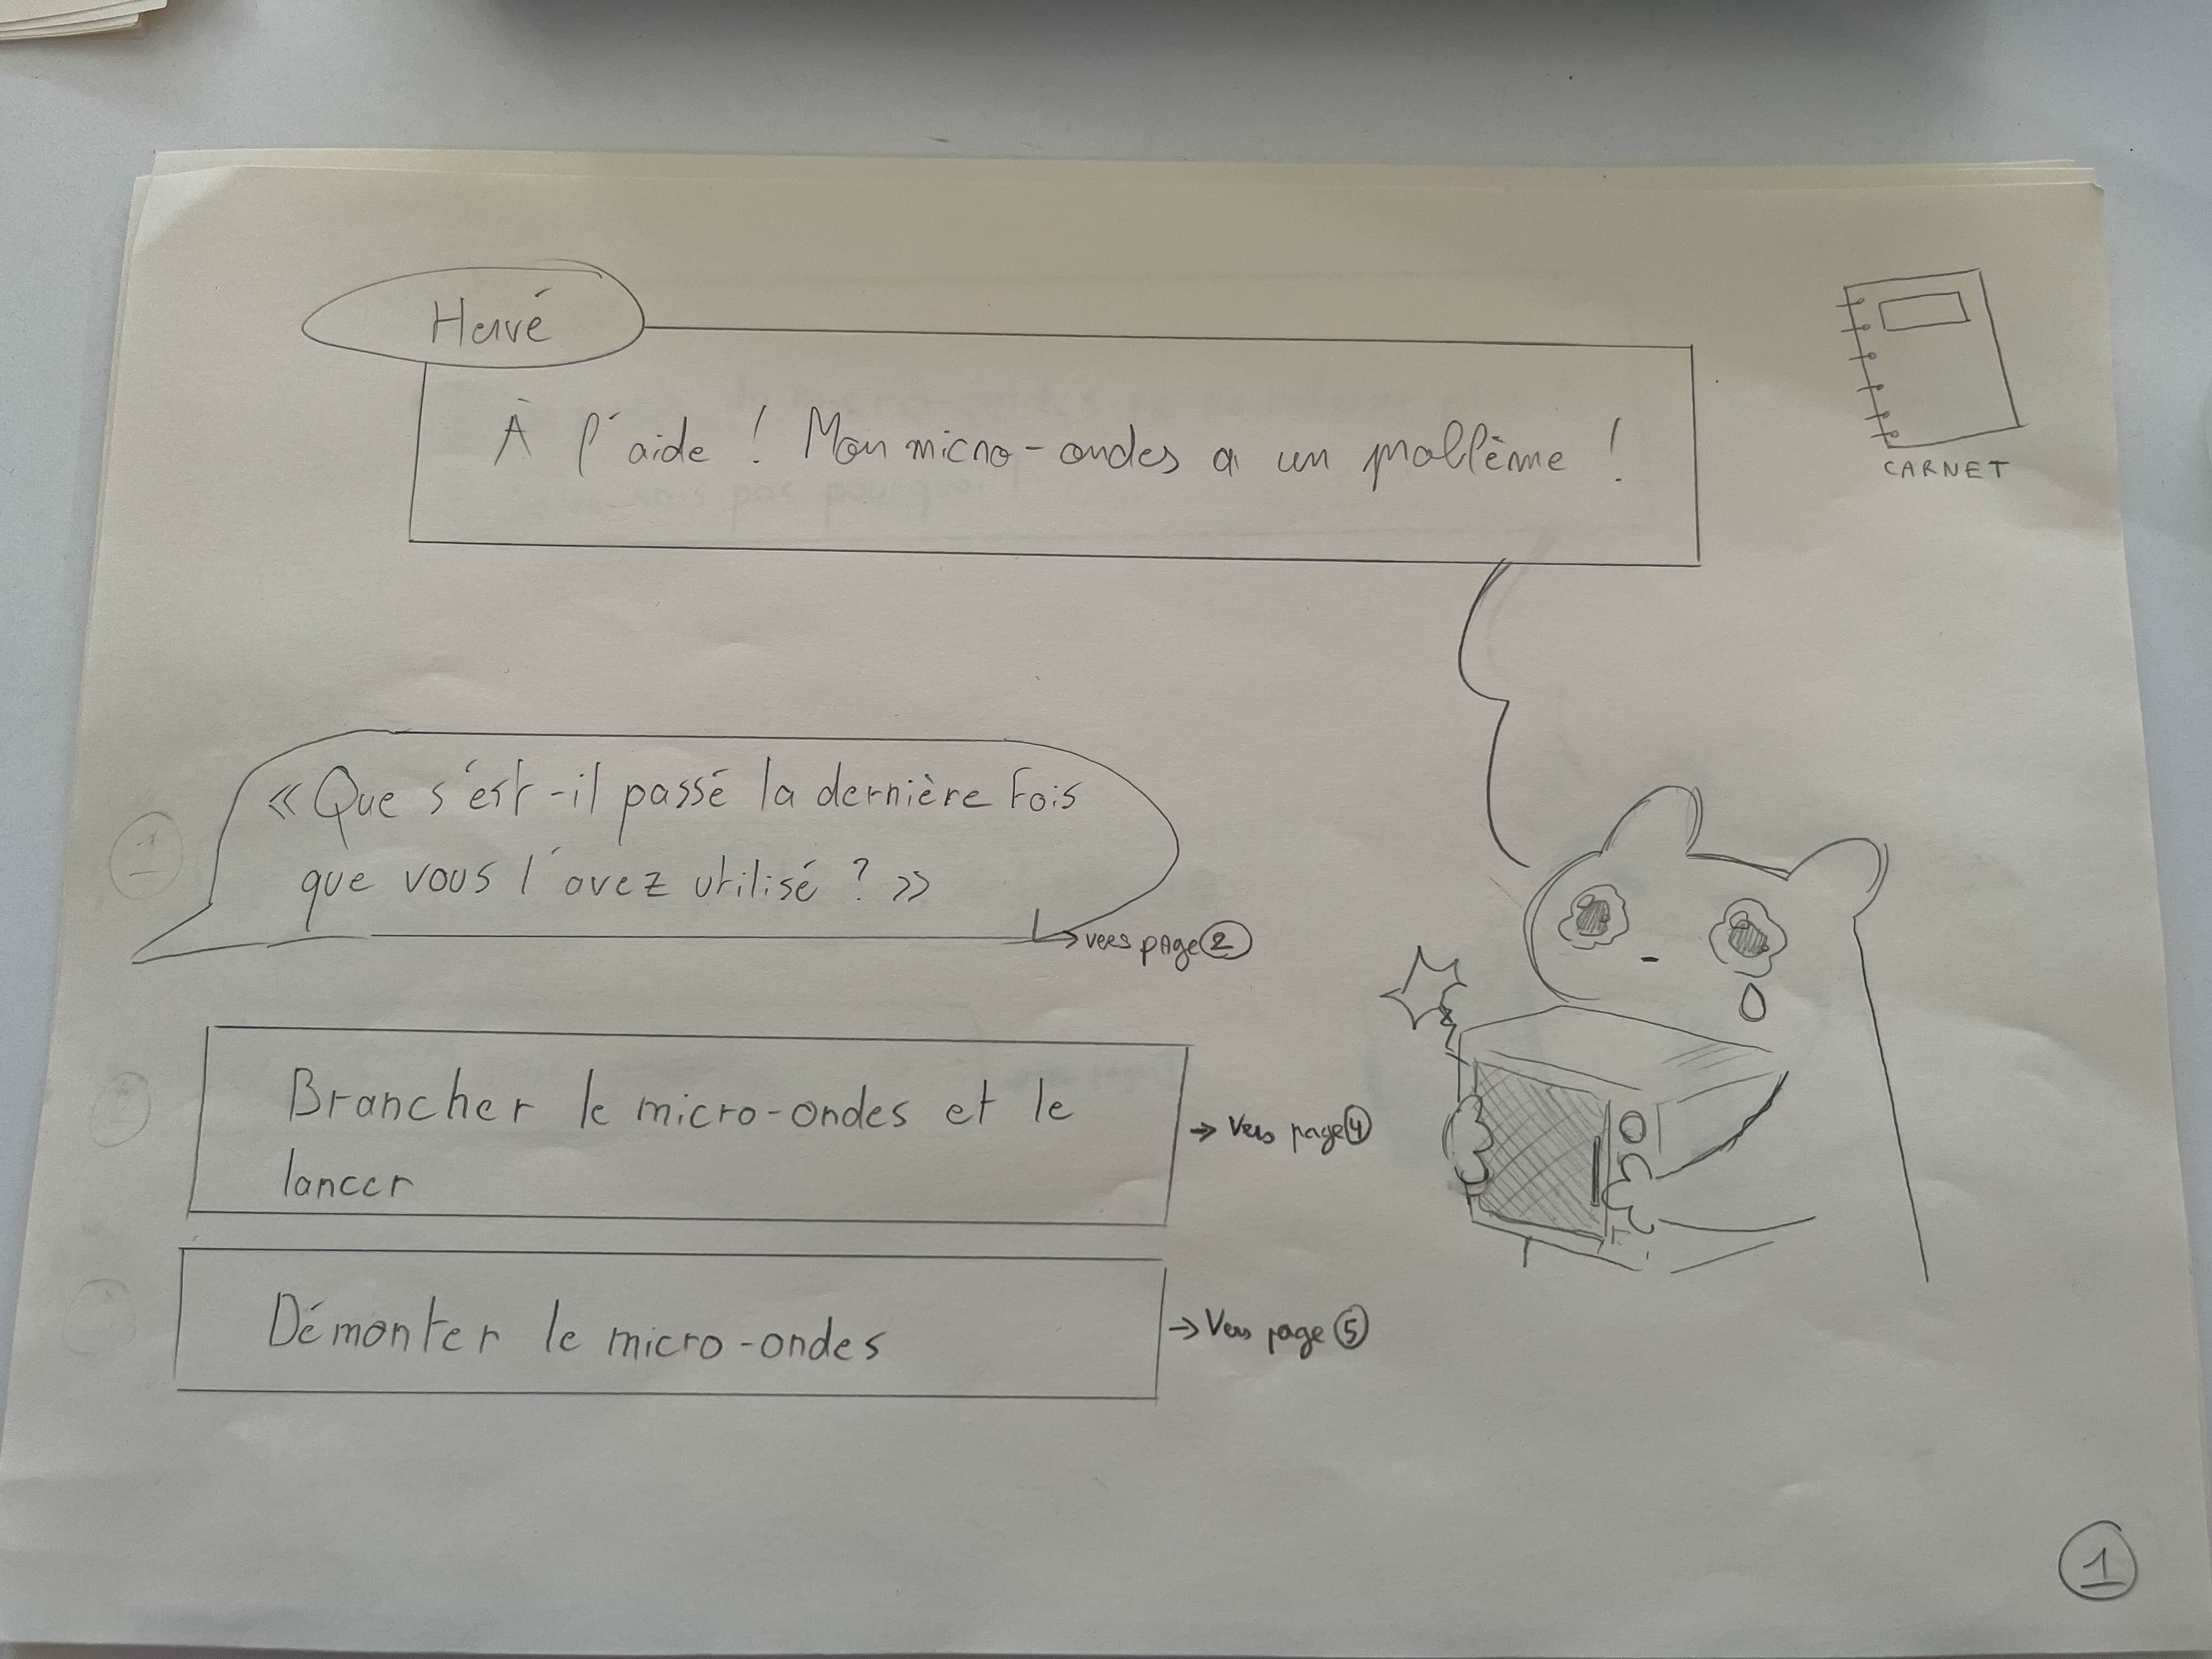 Hervé
À l'aide ! Mon micro-ondes a un problème !
CARNET
« Que s'est-il passé la dernière fois
que vous l'avez utilisé ? »
→ vers page 2
Brancher le micro-ondes et le
lancer
→ Vers page 4
Démonter le micro-ondes
→ Vers page 5
1